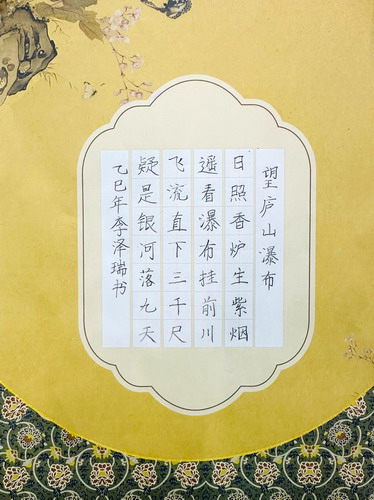 望庐山瀑布
日照香炉生紫烟
遥看瀑布挂前川
飞流直下三千尺
疑是银河落九天
乙巳年李泽瑞书